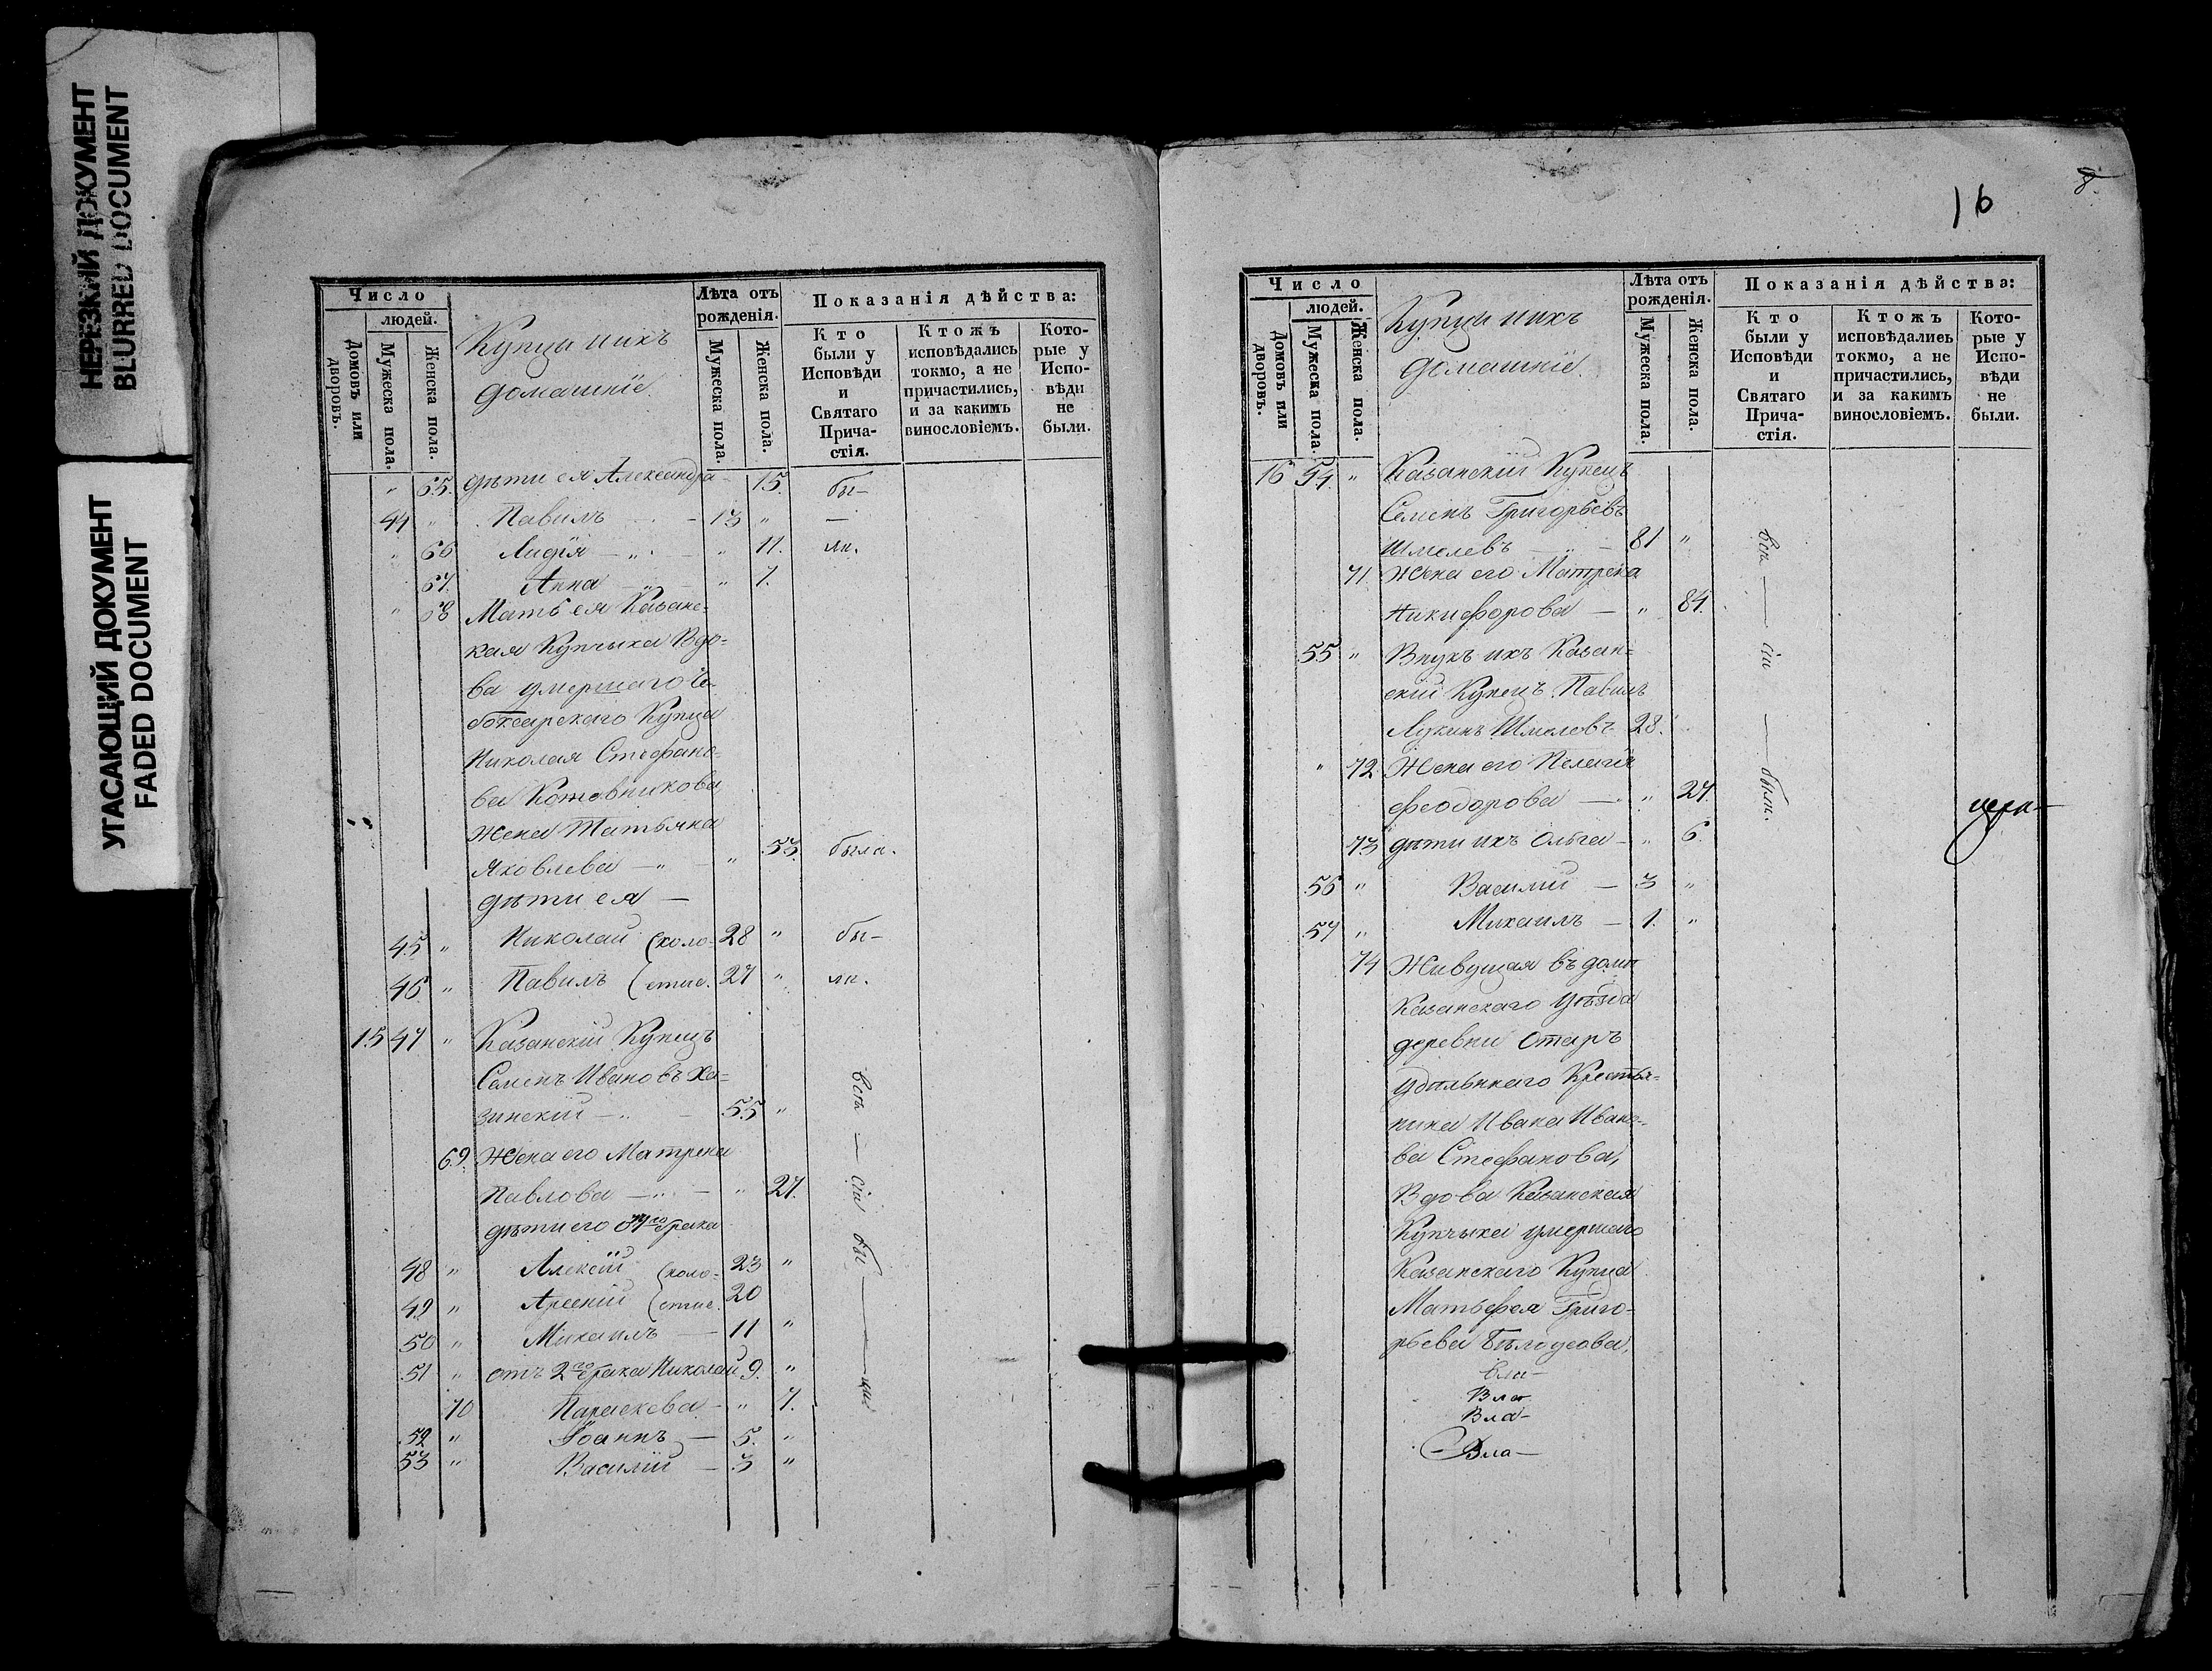 НЕРЕЗКИЙ ДОКУМЕНТ
BLURRED DOCUMENT
УГАСАЮЩИЙ ДОКУМЕНТ
FADED DOCUMENT
Число
людей.
Домовъ или дворовъ.
Мужеска пола.
Женска пола.
Купцы и ихъ
домашніе.
Лѣта отъ
рожденія.
Мужеска пола.
Женска пола.
Показанія дѣйства:
Кто
были у
Исповѣди
и
Святаго
Прича-
стія.
Ктожъ
исповѣдались
токмо, а не
причастились,
и за какимъ
винословіемъ.
Кото-
рые у
Испо-
вѣди
не
были.
" 65. дѣти ея Александра - 15. бы-
44 " Павелъ — 13 " —
" 66 Лидія — " — " 11. ли.
67. Анна — " — " 7.
" 68 Мать ея Казанс-
кая Купчиха Вдо-
ва умершаго Че-
боксарскаго Купца
Николая Стефано-
ва Котовникова
Жена Татьяна
Яковлева — " — " 53. была.
дѣти ея —
45 " Николай (холо- 28 " бы-
46 " Павелъ (стые. 27 " ли.
15 47 " Казанскій Купецъ
Семенъ Ивановъ Ха-
зинскій — " — 55 "
69. Жена его Матрена
Павлова — " — " 27.
дѣти его от 1го брака
48 " Алексій (холо- 23 "
49 " Арсеній (стые. 20
50 " Михаилъ — 11 "
51 " отъ 2го брака Николай 9. "
70 Параскева — " 7.
52 " Іоаннъ — 5. "
53 " Василій — 3 "
всѣ — сіи бы —
16
8.
Число
людей.
Домовъ или дворовъ.
Мужеска пола.
Женска пола.
Купцы и ихъ
домашніе.
Лѣта отъ
рожденія.
Мужеска пола.
Женска пола.
Показанія дѣйства:
Кто
были у
Исповѣди
и
Святаго
Прича-
стія.
Ктожъ
исповѣдались
токмо, а не
причастились,
и за какимъ
винословіемъ.
Кото-
рые у
Испо-
вѣди
не
были.
16 54. " Казанскій Купецъ
Семенъ Григорьевъ
Шмелевъ — " — 81 "
71 Жена его Матрена
Никифорова — " 84.
55 " Внукъ ихъ Казан-
скій Купецъ Павелъ
Лукинъ Шмелевъ 28. "
" 72. Жена его Пелагія
Феодорова — " 27.
73 дѣти ихъ Ольга — " 6.
56 " Василій — 3 "
57 " Михаилъ — 1. "
всѣ — сіи — были.
74 Живущая въ домѣ
Казанскаго уѣзда
деревни Отаръ
удѣльнаго Крестья-
нина Ивана Ивано-
ва Стефанова,
Вдова Казанская
Купчиха умершаго
Казанскаго Купца
Матвѣея Григо-
рьева Бѣлоусова,
Вла-
Вла-
Вла-
Вла-